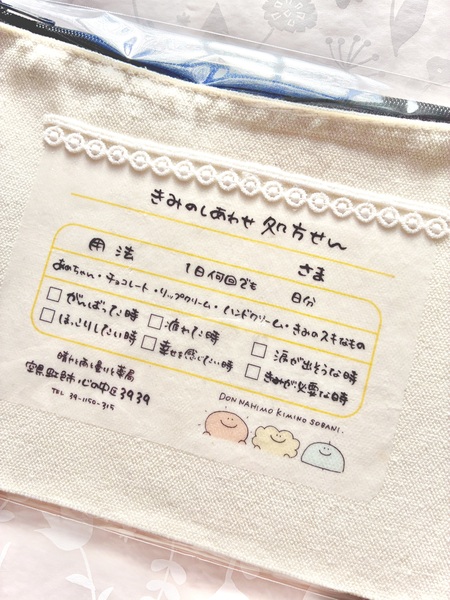 きみのしあわせ 処方せん
さま
用法 1日何回でも 日分
あめちゃん・チョコレート・リップクリーム・ハンドクリーム・きみのスキなもの
□がんばった時 □疲れた時 □涙が出そうな時
□ほっこりしたい時 □幸せを感じたい時 □きみが必要な時
晴れも雨も曇りも薬局
空県虹時市心の中区3939
TEL 39-1150-315
DON NAHIMO KIMINO SOBANI.